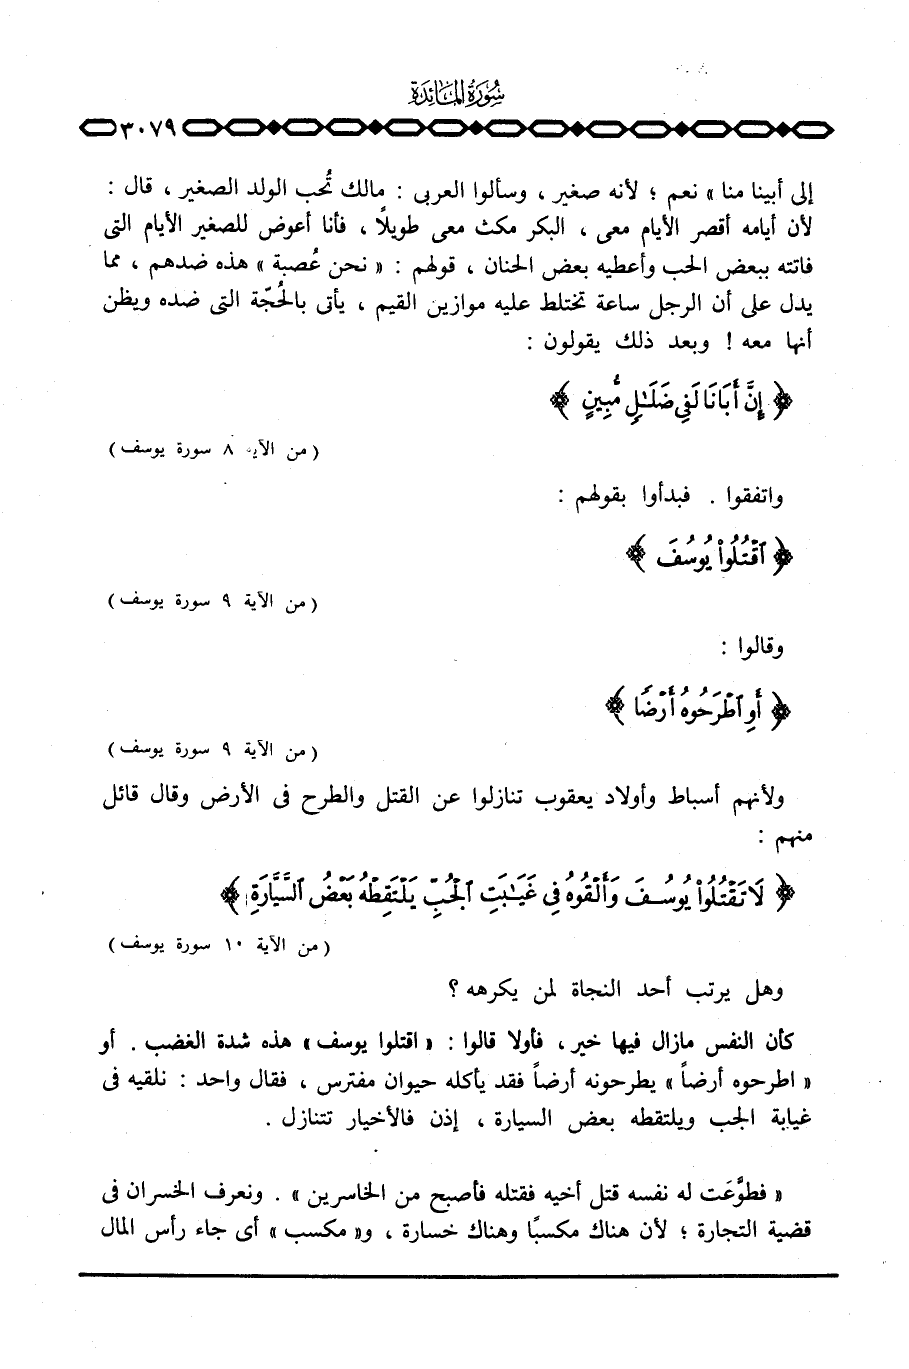 سورة المائدة
٣٠٧٩
إلى أبينا منا » نعم ؛ لأنه صغير ، وسألوا العربى : مالك تُحب الولد الصغير ، قال :
لأن أيامه أقصر الأيام معى ، البكر مكث معى طويلًا ، فأنا أعوض للصغير الأيام التى
فاتته ببعض الحب وأعطيه بعض الحنان ، قولهم : « نحن عُصبة » هذه ضدهم ، مما
يدل على أن الرجل ساعة تختلط عليه موازين القيم ، يأتى بالحُجّة التى ضده ويظن
أنها معه ! وبعد ذلك يقولون :
﴿ إِنَّ أَبَانَا لَفِى ضَلَـٰلٍ مُّبِينٍ ﴾
( من الآية ٨ سورة يوسف )
واتفقوا . فبدأوا بقولهم :
﴿ ٱقْتُلُوا۟ يُوسُفَ ﴾
( من الآية ٩ سورة يوسف )
وقالوا :
﴿ أَوِ ٱطْرَحُوهُ أَرْضًا ﴾
( من الآية ٩ سورة يوسف )
ولأنهم أسباط وأولاد يعقوب تنازلوا عن القتل والطرح فى الأرض وقال قائل
منهم :
﴿ لَا تَقْتُلُوا۟ يُوسُفَ وَأَلْقُوهُ فِى غَيَـٰبَتِ ٱلْجُبِّ يَلْتَقِطْهُ بَعْضُ ٱلسَّيَّارَةِ ﴾
( من الآية ١٠ سورة يوسف )
وهل يرتب أحد النجاة لمن يكرهه ؟
كأن النفس مازال فيها خير ، فأولا قالوا : « اقتلوا يوسف » هذه شدة الغضب . أو
« اطرحوه أرضاً » يطرحونه أرضاً فقد يأكله حيوان مفترس ، فقال واحد : نلقيه فى
غيابة الجب ويلتقطه بعض السيارة ، إذن فالأخيار تتنازل .
« فطوَّعَت له نفسه قتل أخيه فقتله فأصبح من الخاسرين » . ونعرف الخسران فى
قضية التجارة ؛ لأن هناك مكسبًا وهناك خسارة ، و« مكسب » أى جاء رأس المال